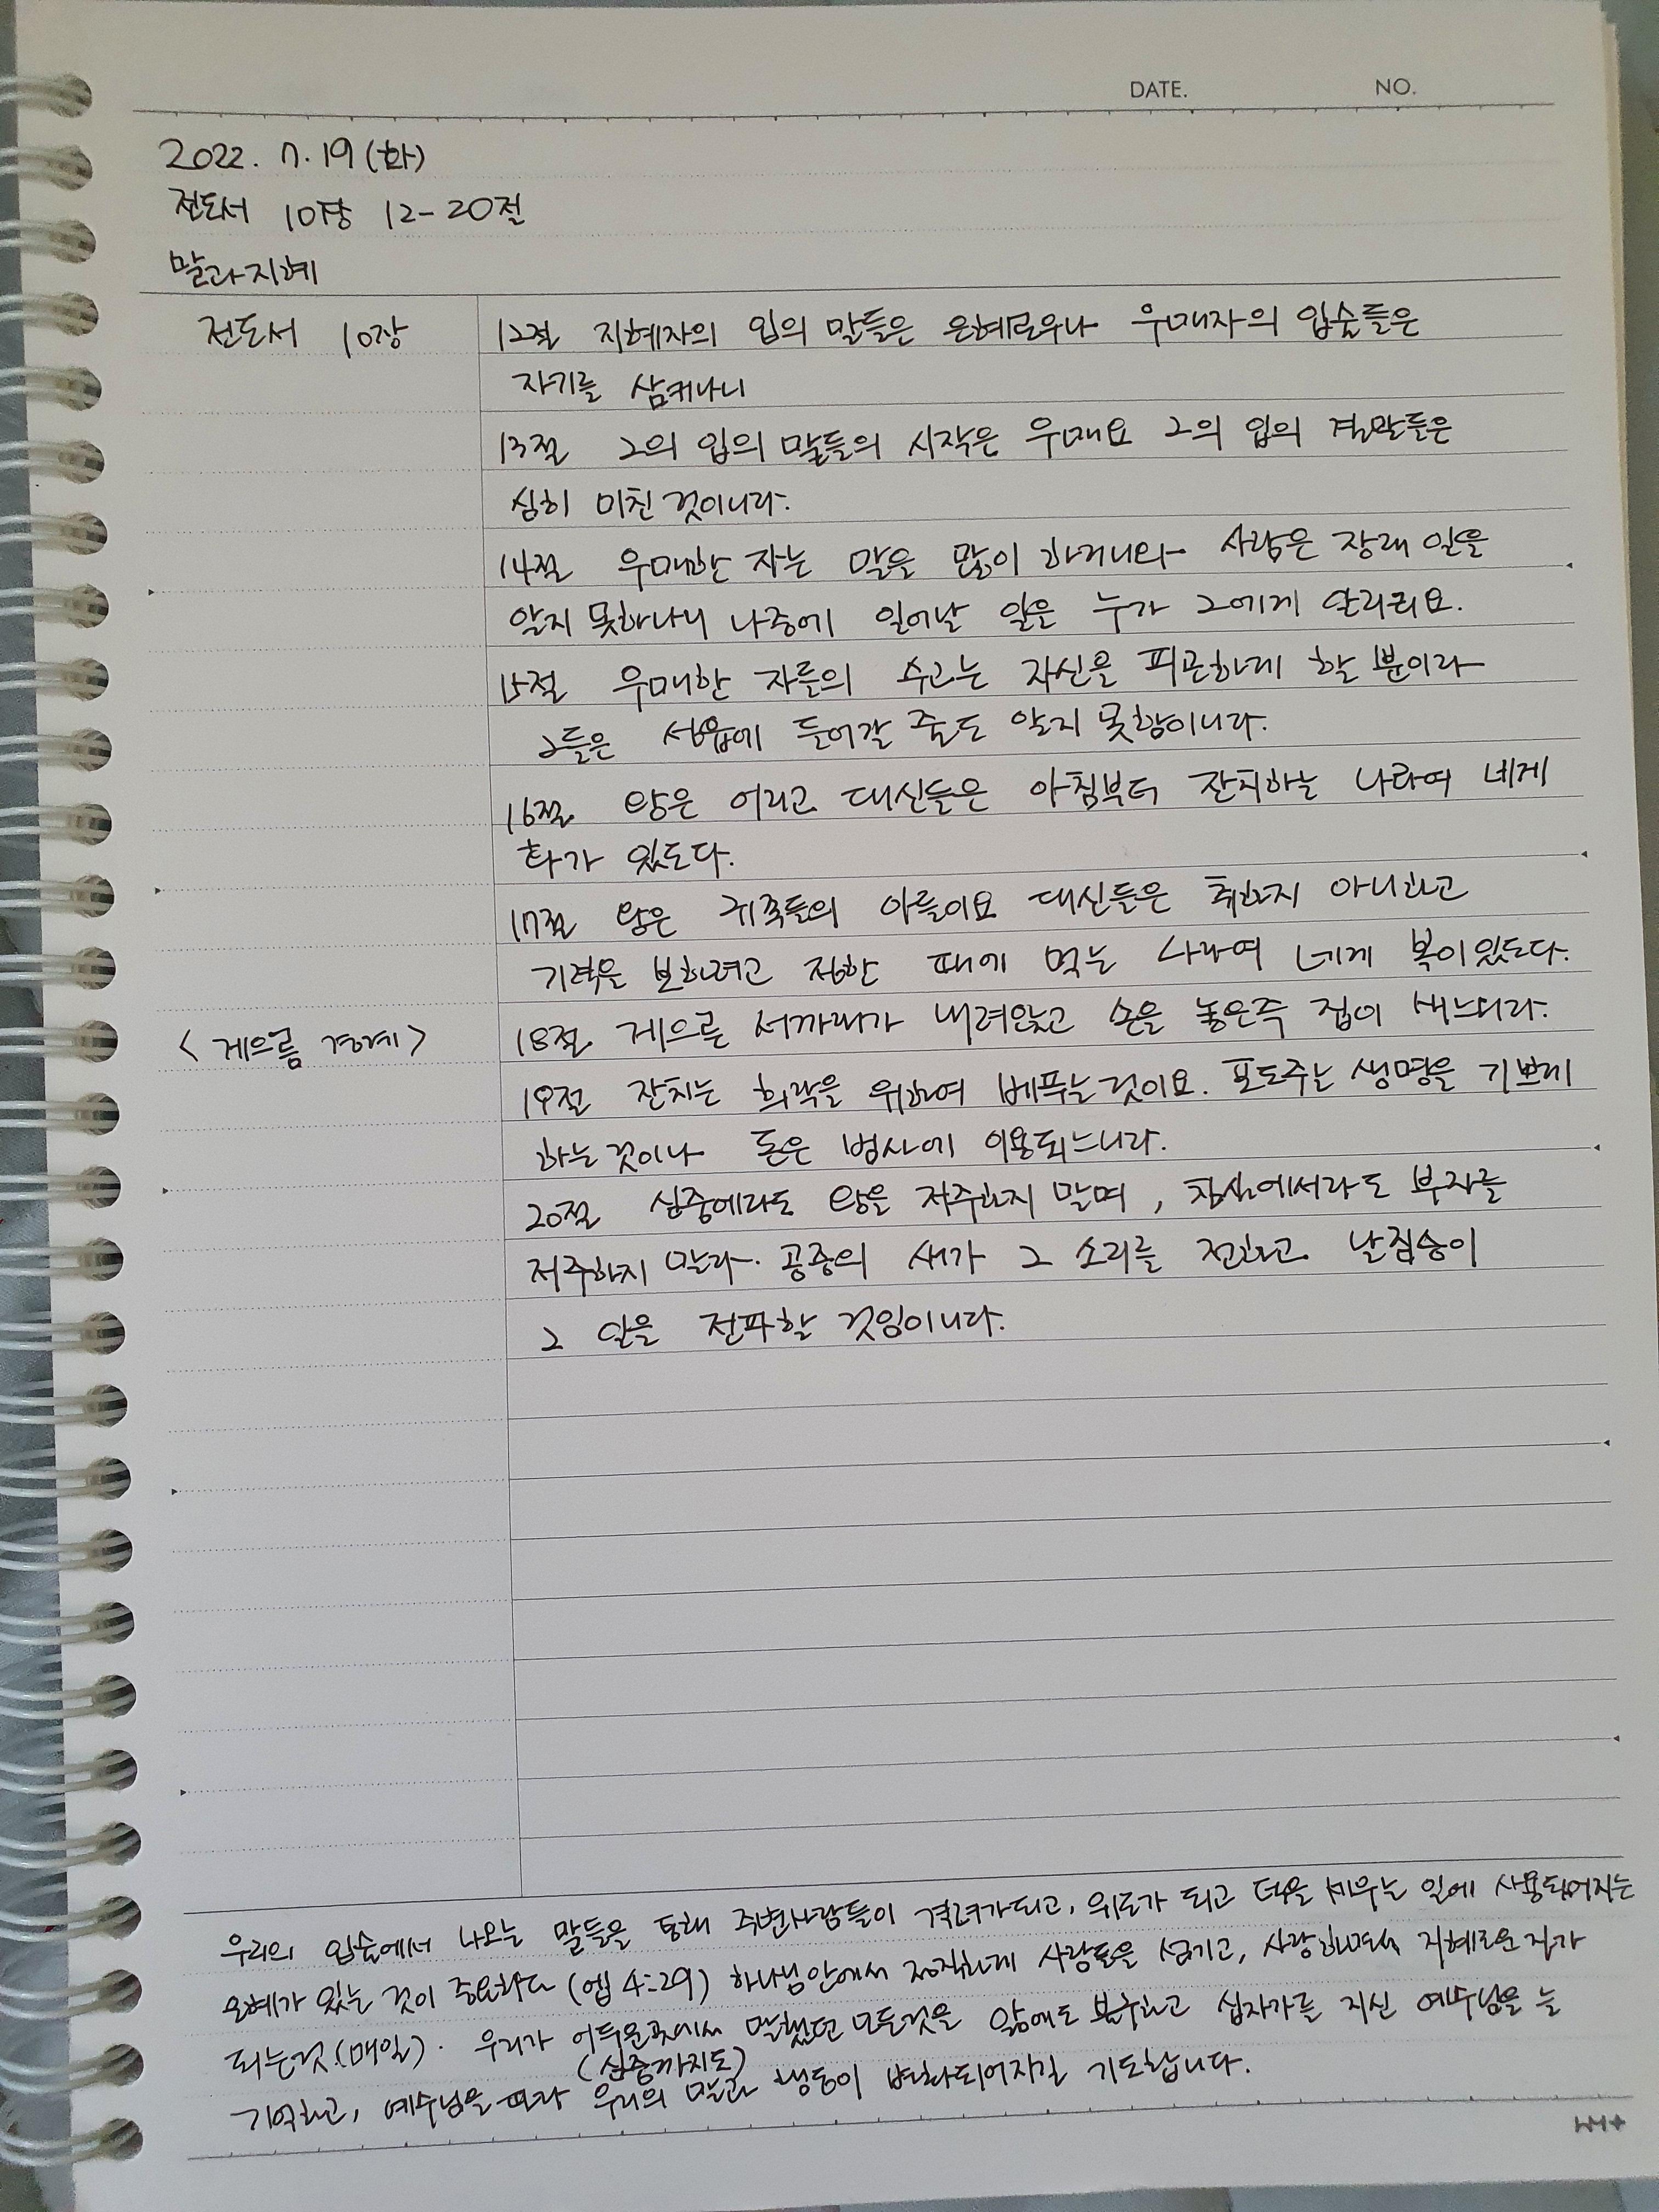 DATE. NO.
2022. 7. 19 (화)
전도서 10장 12-20절
말과 지혜
전도서 10장
12절 지혜자의 입의 말들은 은혜로우나 우매자의 입술들은
자기를 삼키나니
13절 그의 입의 말들의 시작은 우매요 그의 입의 결말들은
심히 미친 것이니라.
14절 우매한 자는 말을 많이 하거니와 사람은 장래 일을
알지 못하나니 나중에 일어날 일을 누가 그에게 알리리요.
15절 우매한 자들의 수고는 자신을 피곤하게 할 뿐이라
그들은 성읍에 들어갈 줄도 알지 못함이니라.
16절 왕은 어리고 대신들은 아침부터 잔치하는 나라여 네게
화가 있도다.
17절 왕은 귀족들의 아들이요 대신들은 취하지 아니하고
기력을 보하려고 정한 때에 먹는 나라여 네게 복이 있도다.
<게으름 경계>
18절 게으른 서까래가 내려앉고 손을 놓은즉 집이 새느니라.
19절 잔치는 희락을 위하여 베푸는 것이요. 포도주는 생명을 기쁘게
하는 것이나 돈은 범사에 이용되느니라.
20절 심중에라도 왕을 저주하지 말며, 침실에서라도 부자를
저주하지 말라. 공중의 새가 그 소리를 전하고 날짐승이
그 일을 전파할 것임이니라.
우리의 입술에서 나오는 말들을 통해 주변사람들이 격려가되고, 위로가 되고 덕을 세우는 일에 사용되어지는
은혜가 있는 것이 중요하다 (엡 4:29) 하나님안에서 정직하게 사람들을 섬기고, 사랑하면서 지혜로운자가
되는것(매일). 우리가 어두운곳에서 말했던 모든것을 앞에도 하고 십자가를 지신 예수님을 늘
(심중까지도)
기억하고, 예수님을 따라 우리의 말과 행동이 변화되어지길 기도합니다.